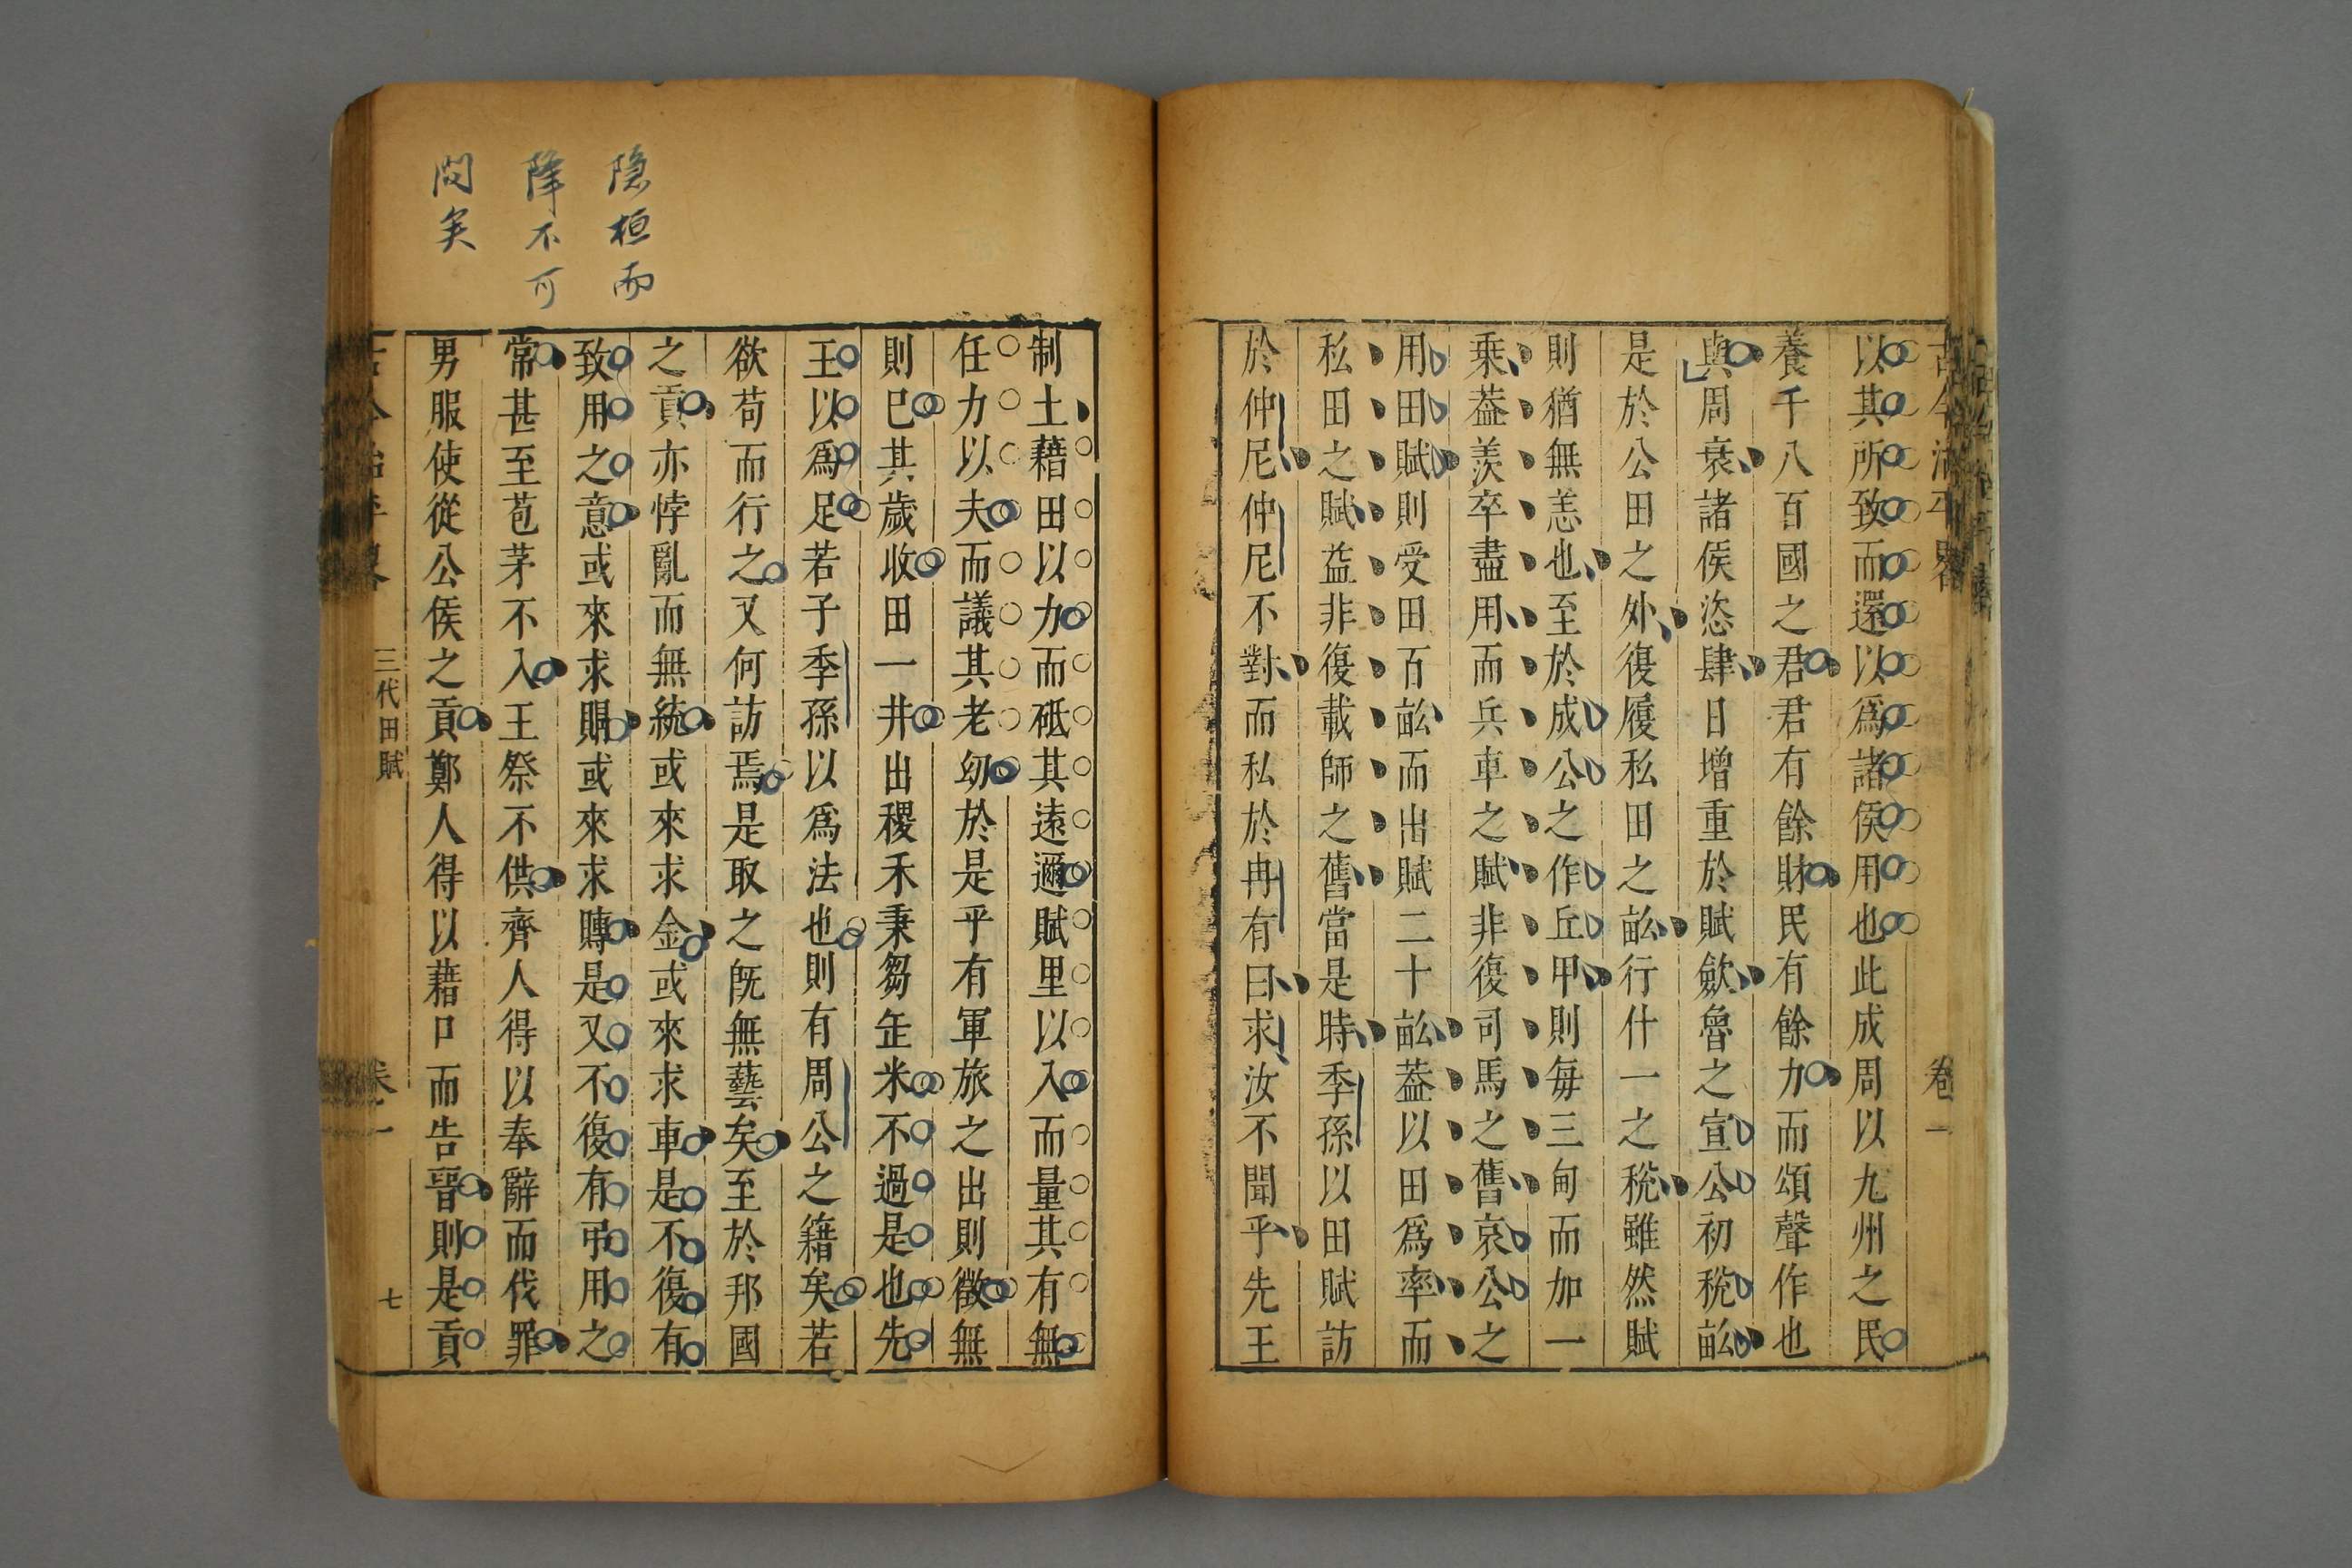 卷一
以其所致而還以爲諸侯用也此成周以九州之民
養千八百國之君君有餘財民有餘力而頌聲作也
與周衰諸侯恣肆日增重於賦斂魯之宣公初稅畝
是於公田之外復履私田之畝行什一之稅雖然賦
則猶無恙也至於成公之作丘甲則每三甸而加一
乗葢羨卒盡用而兵車之賦非復司馬之舊哀公之
用田賦則受田百畝而出賦二十畝葢以田爲率而
私田之賦益非復載師之舊當是時季孫以田賦訪
於仲尼仲尼不對而私於冉有曰求汝不聞乎先王
制土藉田以力而砥其遠邇賦里以入而量其有無
任力以夫而議其老幼於是乎有軍旅之出則徵無
則已其歲收田一井出稷禾秉芻缶米不過是也先
王以爲足若子季孫以爲法也則有周公之籍矣若
欲苟而行之又何訪焉是取之既無藝矣至於邦國
之貢亦悖亂而無統或來求金或來求車是不復有
致用之意或來求賵或來求賻是又不復有弔用之
常甚至苞茅不入王祭不供齊人得以奉辭而伐罪
男服使從公侯之貢鄭人得以藉口而告晉則是貢
三代田賦
卷一
七
隐桓而
降不可
问矣